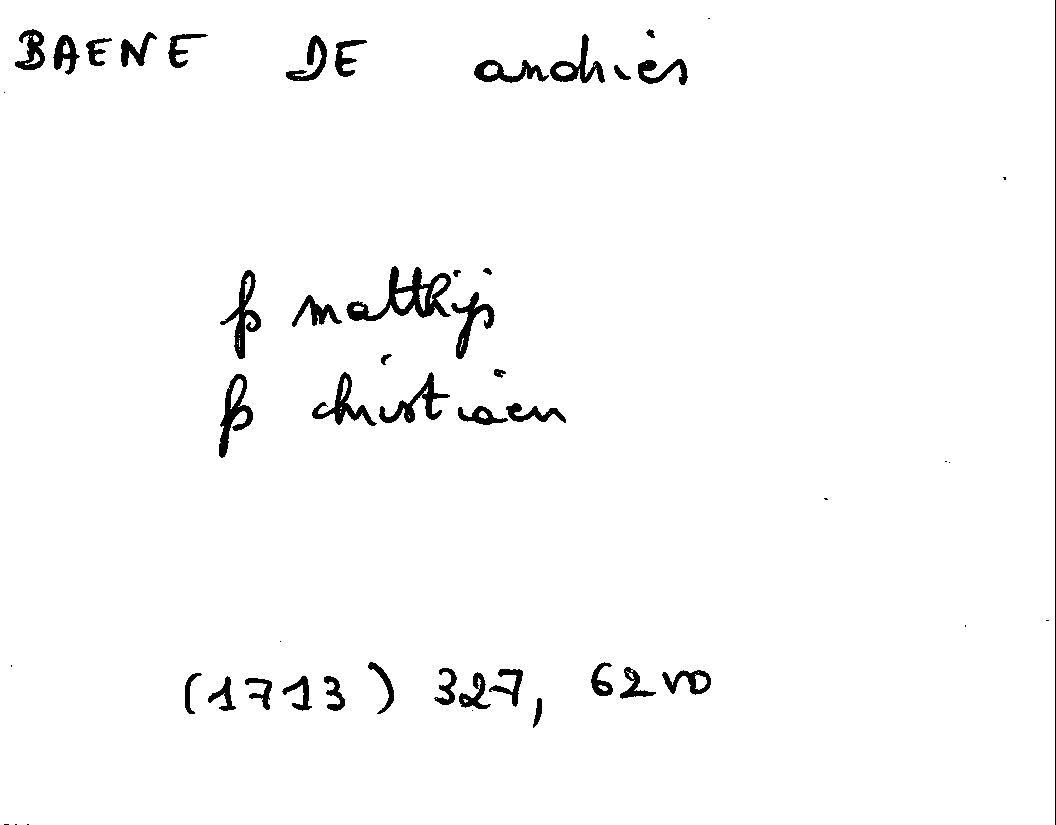 BAENE DE andries
fs matthijs
fs christiaen
(1713) 327, 62vo